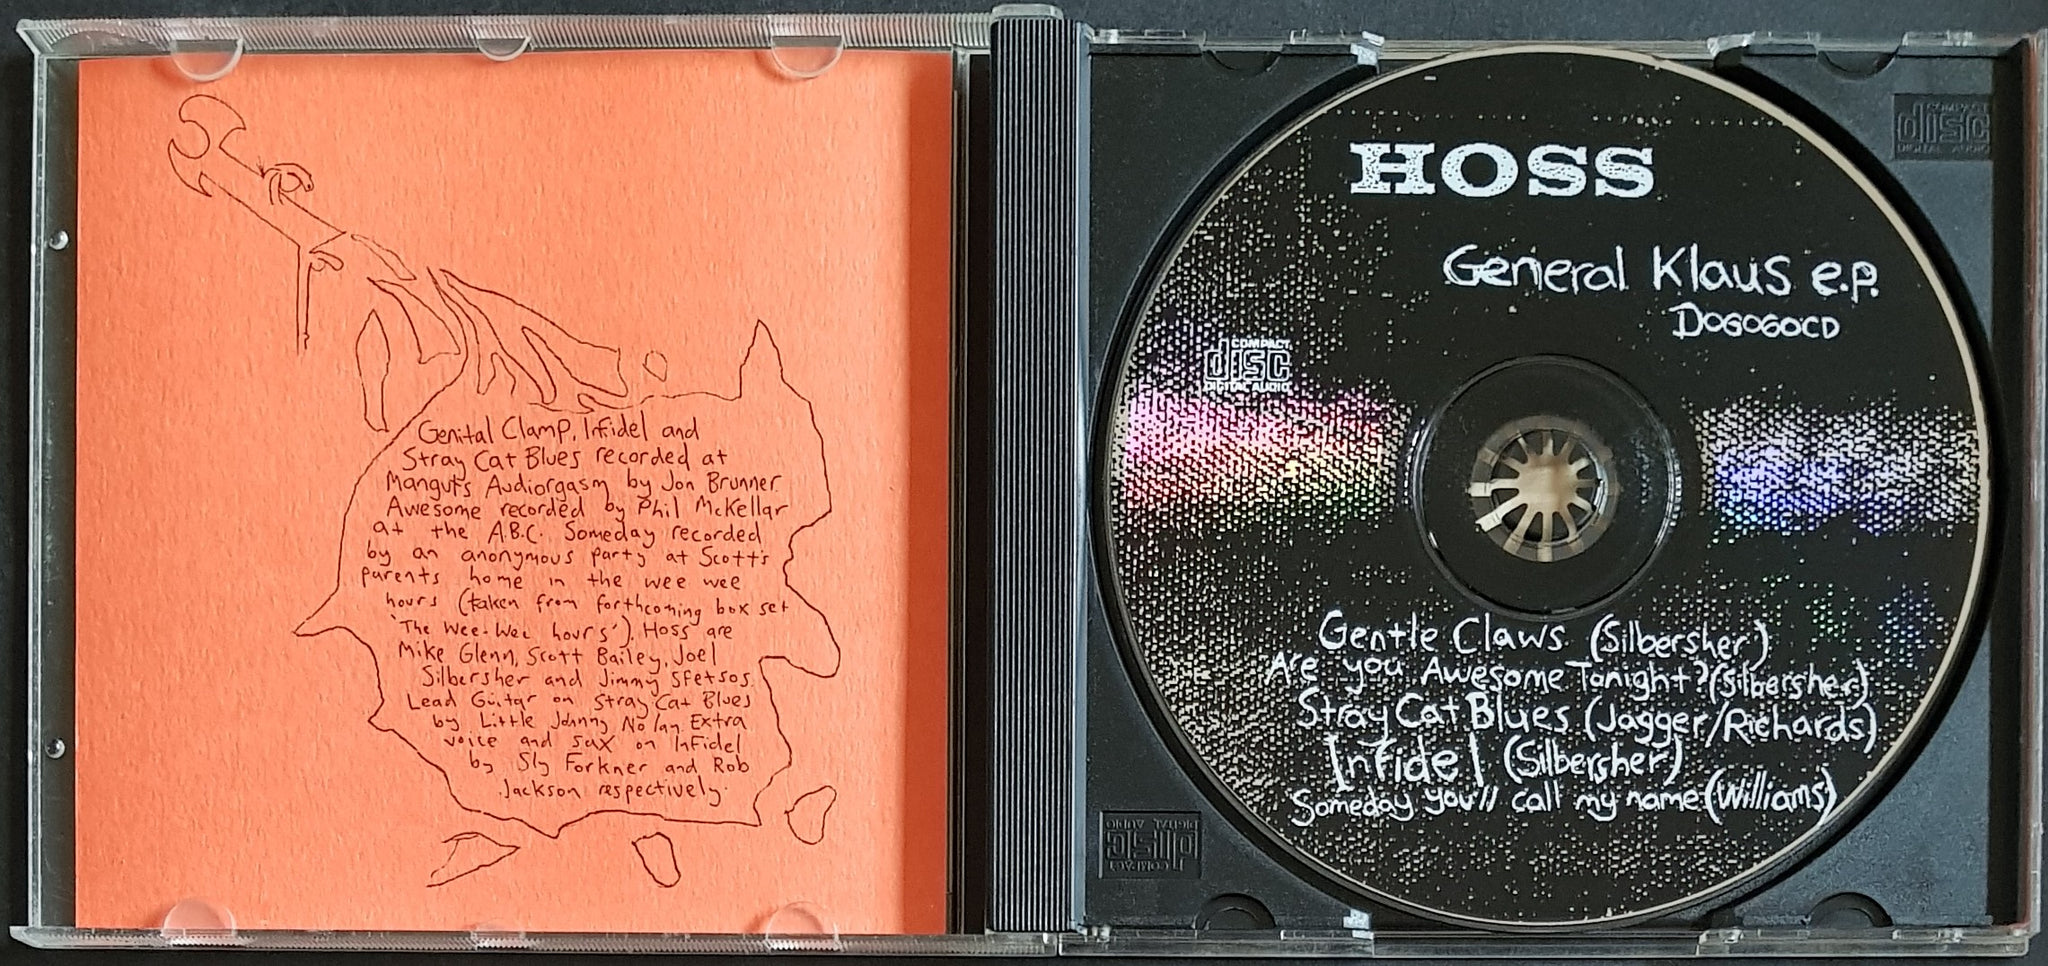 Genital Clamp, Infidel and
Stray Cat Blues recorded at
Manguts Audiorgasm by Jon Brunner.
Awesome recorded by Phil McKellar
at the A.B.C. Someday recorded
by an anonymous party at Scott's
parents home in the wee wee
hours (taken from forthcoming box set
'The Wee-Wee hours'). Hoss are
Mike Glenn, Scott Bailey, Joel
Silbersher and Jimmy Sfetsos.
Lead Guitar on Stray Cat Blues
by Little Johnny Nolan. Extra
voice and sax on Infidel
by Sly Forkner and Rob
Jackson respectively.
HOSS
General Klaus e.p.
DOGOGOCD
COMPACT
disc
DIGITAL AUDIO
Gentle Claws (Silbersher)
Are you Awesome Tonight? (Silbersher)
Stray Cat Blues (Jagger/Richards)
Infidel (Silbersher)
Someday you'll call my name (Williams)
COMPACT
disc
DIGITAL AUDIO
COMPACT
disc
DIGITAL AUDIO